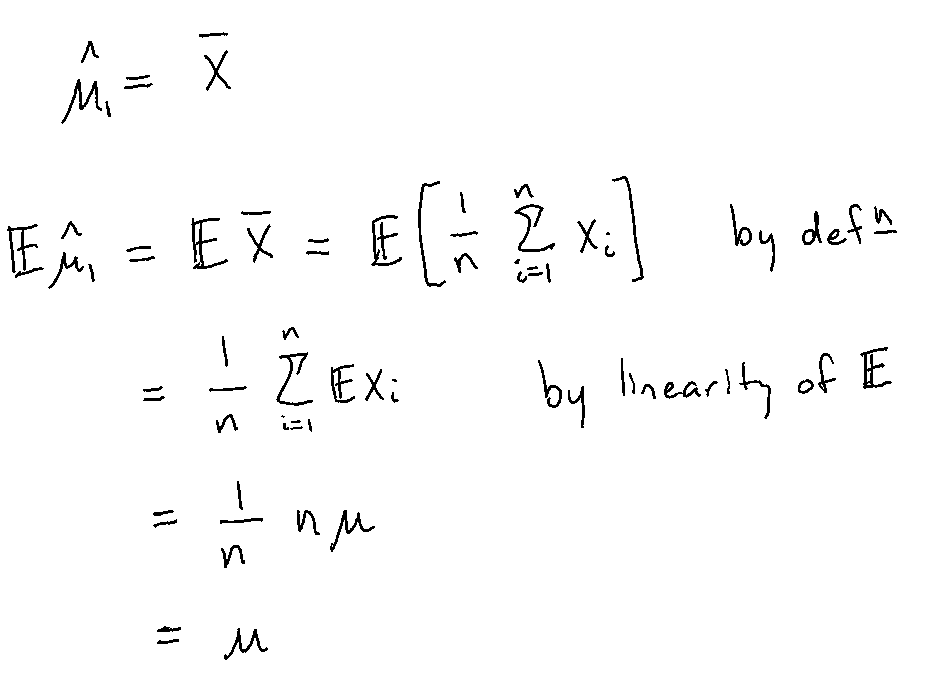 μ̂₁ = X̄
𝔼μ̂₁ = 𝔼X̄ = 𝔼[1/n ∑ᵢ₌₁ⁿ Xᵢ] by defⁿ
= 1/n ∑ᵢ₌₁ⁿ 𝔼Xᵢ by linearity of 𝔼
= 1/n nμ
= μ